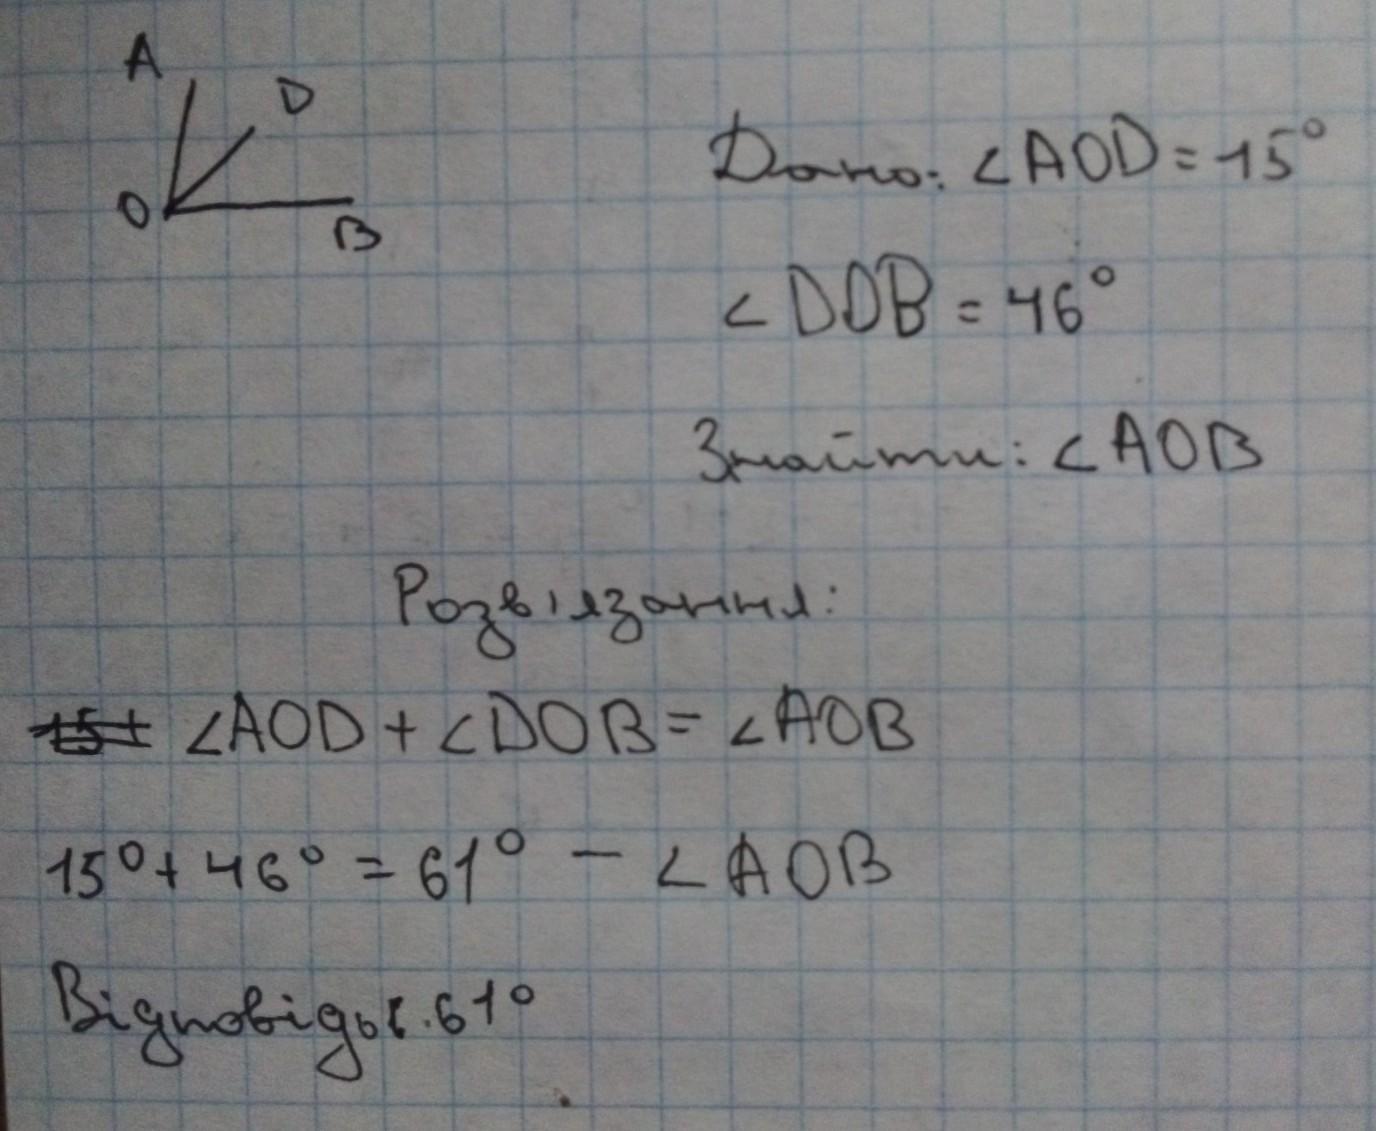 A
D
O
B
Дано: ∠AOD = 15°
∠DOB = 46°
Знайти: ∠AOB
Розв'язання:
∠AOD + ∠DOB = ∠AOB
15° + 46° = 61° – ∠AOB
Відповідь: 61°